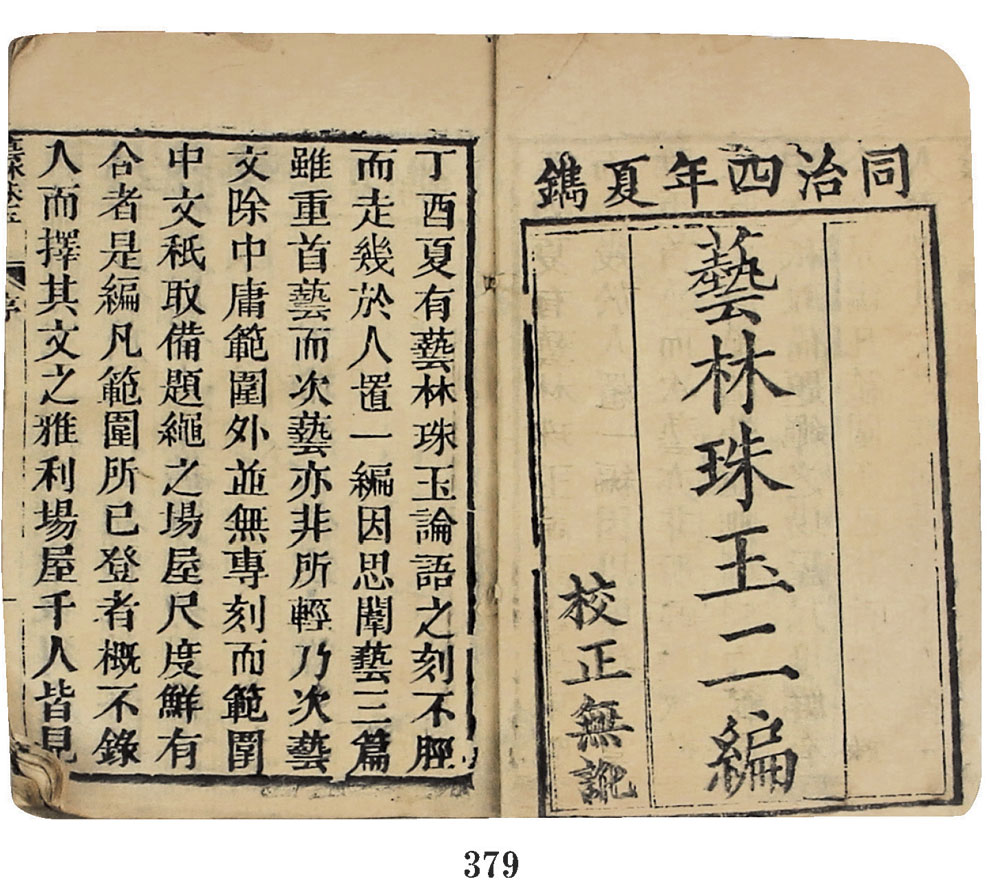 同治四年夏鐫
藝林珠玉二編
校正無訛
丁酉夏有藝林珠玉論語之刻不脛
而走幾於人置一編因思闈藝三篇
雖重首藝而次藝亦非所輕乃次藝
文除中庸範圍外並無專刻而範圍
中文秖取備題繩之場屋尺度鮮有
合者是編凡範圍所已登者概不錄
人而擇其文之雅利場屋千人皆見
序
379